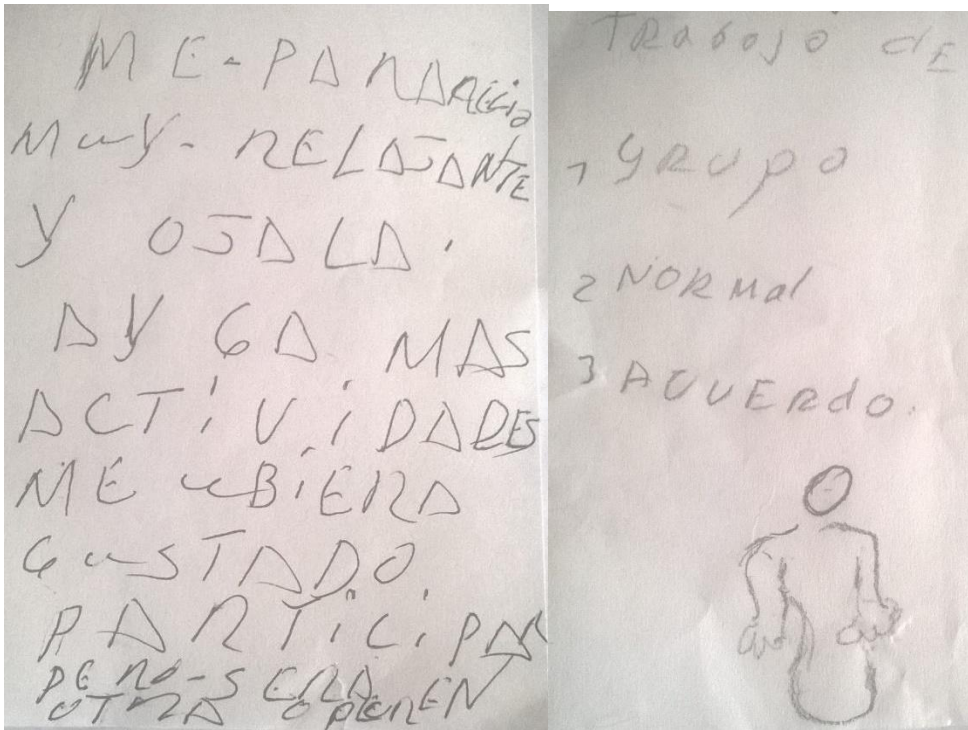 ME - PARA RECIO
MUY - RELAJANTE
Y OJALA.
AY GA MAS
ACTIVIDADES
ME UBIERA
GUSTADO.
PARTICIPAR
PERO - SERA EN
OTRA
TRabajo dE
1 GRUPO
2 NORMal
3 ACUERdO.